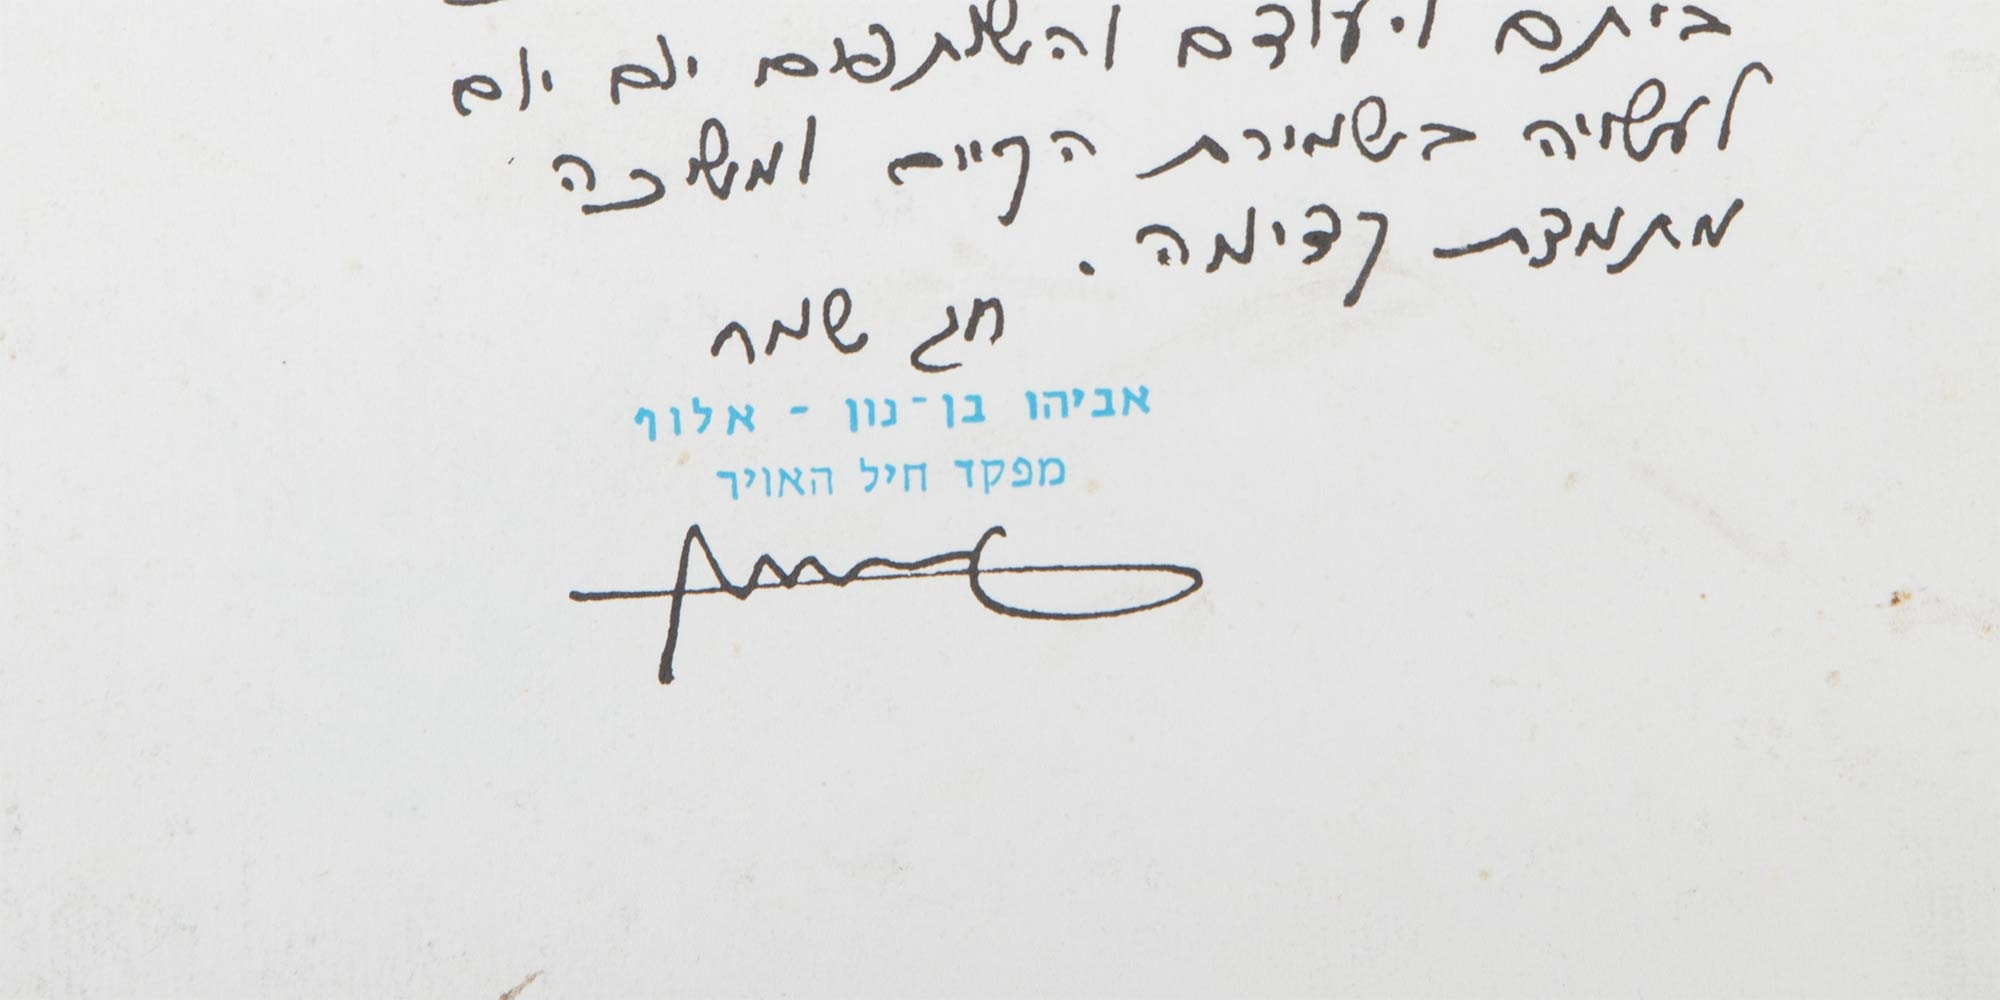 ביתם ויעודם והשותפים יום יום
לעשיה בשמירת הקיים ומשיכה
מתמדת קדימה.
חג שמח
אביהו בן-נון - אלוף
מפקד חיל האויר